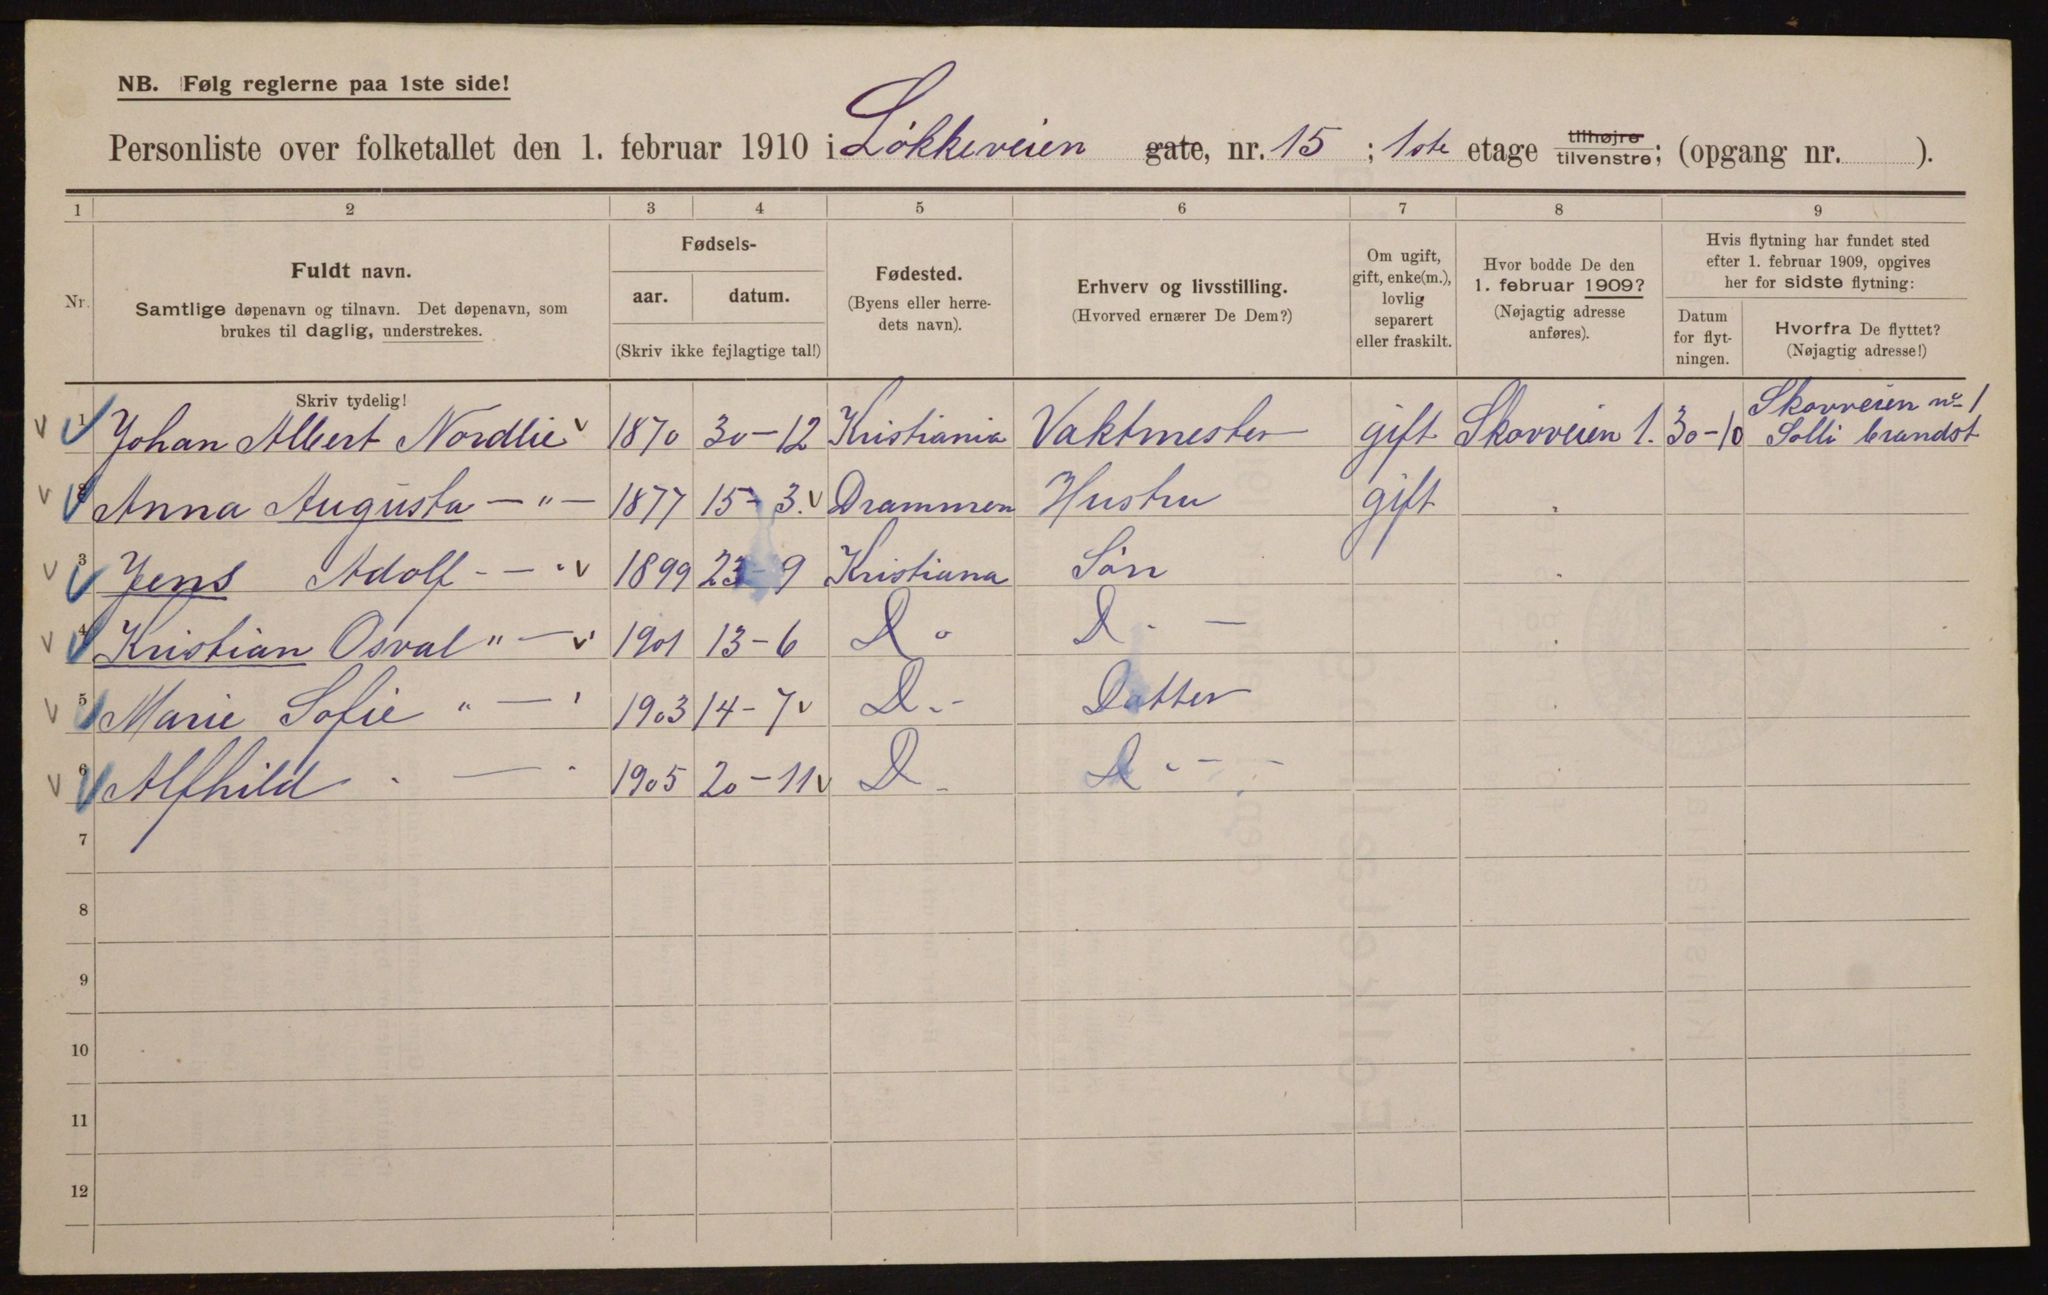 NB. Følg reglerne paa 1ste side!
Personliste over folketallet den 1. februar 1910 i Løkkeveien gate, nr. 15 ; 1ste etage tilhøjre tilvenstre; (opgang nr. ).
1 2 3 4 5 6 7 8 9
Nr.
Fuldt navn.
Samtlige døpenavn og tilnavn. Det døpenavn, som
brukes til daglig, understrekes.
Skriv tydelig!
Fødsels-
aar. datum.
(Skriv ikke fejlagtige tal!)
Fødested.
(Byens eller herre-
dets navn).
Erhverv og livsstilling.
(Hvorved ernærer De Dem?)
Om ugift,
gift, enke(m.),
lovlig
separert
eller fraskilt.
Hvor bodde De den
1. februar 1909?
(Nøjagtig adresse
anføres).
Hvis flytning har fundet sted
efter 1. februar 1909, opgives
her for sidste flytning:
Datum
for flyt-
ningen.
Hvorfra De flyttet?
(Nøjagtig adresse!)
1 Johan Albert Nordlie 1870 30-12 Kristiania Vaktmester gift Skovveien 1. 30-10 Skovveien no 1
Solli brandst
2 Anna Augusta — " — 1877 15-3. Drammen Hustru gift
3 Jens Adolf - — " 1899 23-9 Kristiana Søn
4 Kristian Osval " — " 1901 13-6 Do D. —
5 Marie Sofie " — ' 1903 14-7 D.- Datter
6 Alfhild . — . 1905 20-11 D. D. - -
7
8
9
10
11
12